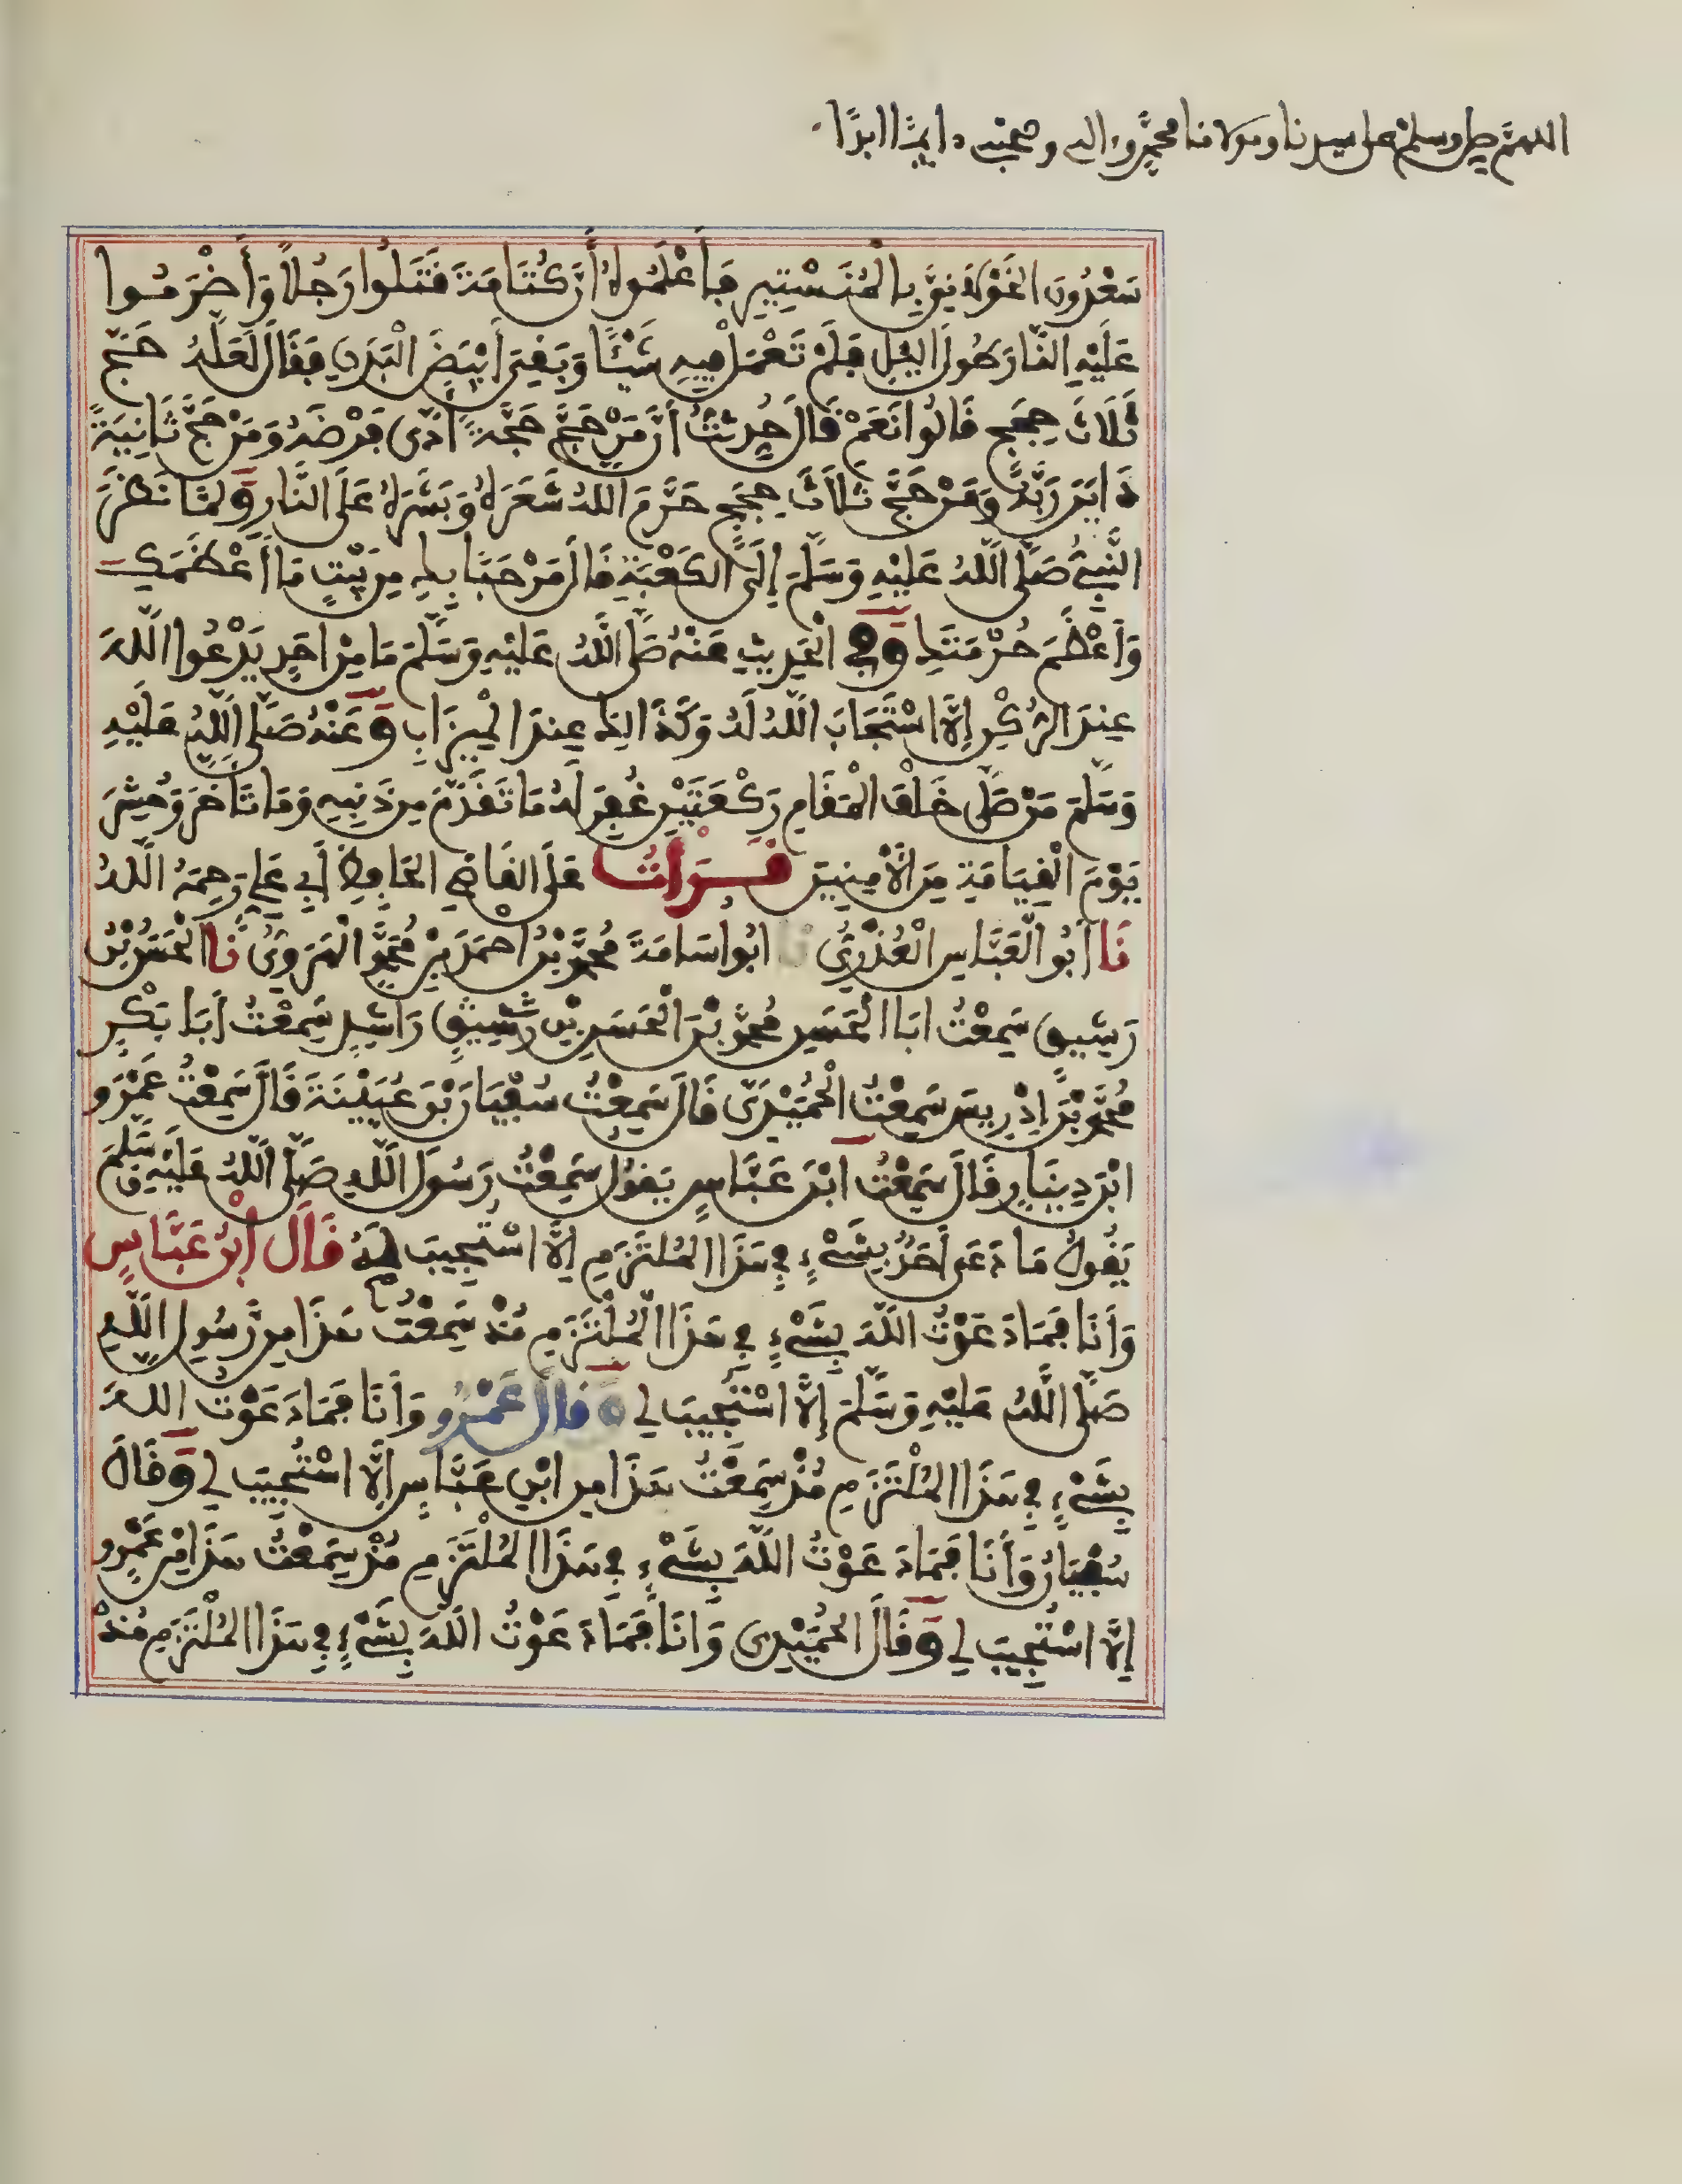 اللهم صل وسلم على سيدنا ومولانا محمد وءاله وصحبه دايما ابدا
سَعْدُونَ الْخَوْلَانِيَّ بِالْمُنَسْتِيرِ فَأَعْلَمُوهُ أَنَّ كُتَامَةَ قَتَلُوا رَجُلاً وَأَضْرَمُوا
عَلَيْهِ النَّارَ طُولَ الَّيْلِ فَلَمْ تَعْمَلْ فِيهِ شَيْئًا وَبَقِيَ أَبْيَضَ الْبَدَنِ فَقَالَ لَعَلَّهُ حَجَّ
ثَلَاثَ حِجَجٍ قَالُوا نَعَمْ قَالَ حُدِّثْتُ أَنَّ مَنْ حَجَّ حَجَّةً أَدَّى فَرْضَهُ وَمَنْ حَجَّ ثَانِيَةً
دَايَنَ رَبَّهُ وَمَنْ حَجَّ ثَلَاثَ حِجَجٍ حَرَّمَ اللَّهُ شَعَرَهُ وَبَشَرَهُ عَلَى النَّارِ وَلَمَّا نَظَرَ
النَّبِيُّ صَلَّى اللَّهُ عَلَيْهِ وَسَلَّمَ إِلَى الْكَعْبَةِ قَالَ مَرْحَبًا بِكِ مِنْ بَيْتٍ مَا أَعْظَمَكِ
وَأَعْظَمَ حُرْمَتَكِ وَفِي الْحَدِيثِ عَنْهُ صَلَّى اللَّهُ عَلَيْهِ وَسَلَّمَ مَا مِنْ احَدٍ يَدْعُوا اللَّهَ
عِندَ الرُّكْنِ إِلَّا اسْتَجَابَ اللَّهُ لَهُ وَكَذَالِكَ عِندَ الْمِيزَابِ وَعَنْهُ صَلَّى اللَّهُ عَلَيْهِ
وَسَلَّمَ مَنْ صَلَّى خَلْفَ الْمَقَامِ رَكْعَتَيْنِ غُفِرَ لَهُ مَا تَقَدَّمَ مِن ذَنبِهِ وَمَا تَأَخَّرَ وَحُشِرَ
يَوْمَ الْقِيَامَةِ مِنَ الْأَمِنِينَ قَرَأْتُ عَلَى الْقَاضِي الْحَافِظِ أَبِي عَلِيٍّ رَحِمَهُ اللَّهُ
نَا أَبُو الْعَبَّاسِ الْعُذْرِيُّ نا ابُو اسَامَةَ مُحَمَّدُ بْنُ احْمَدَ بْنِ مُحَمَّدٍ الْهَرَوِيُّ نَا الْحَسَنُ بْنُ
رَشِيقٍ سَمِعْتُ ابَا الْحَسَنِ مُحَمَّدَ بْنَ الْحَسَنِ بْنِ رَشِيقٍ رَاشِدٍ سَمِعْتُ أَبَا بَكْرٍ
مُحَمَّدَ بْنَ إِدْرِيسَ سَمِعْتُ الْحُمَيْدِيَّ قَالَ سَمِعْتُ سُفْيَانَ بْنَ عُيَيْنَةَ قَالَ سَمِعْتُ عَمْرَو
ابْنَ دِينَارٍ قَالَ سَمِعْتُ ابْنَ عَبَّاسٍ يَقُولُ سَمِعْتُ رَسُولَ اللَّهِ صَلَّى اللَّهُ عَلَيْهِ وَسَلَّمَ
يَقُولُ مَا دَعَى أَحَدٌ بِشَيْءٍ فِي هَذَا الْمُلْتَزَمِ إِلَّا اسْتُجِيبَ لَهُ قَالَ ابْنُ عَبَّاسٍ
وَأَنَا فَمَا دَعَوْتُ اللَّهَ بِشَيْءٍ فِي هَذَا الْمُلْتَزَمِ مُنْذُ سَمِعْتُ هَذَا مِن رَّسُولِ اللَّهِ
صَلَّى اللَّهُ عَلَيْهِ وَسَلَّمَ إِلَّا اسْتُجِيبَ لِي وَقَالَ عَمْرُو وَأَنَا فَمَا دَعَوْتُ اللَّهَ
بِشَيْءٍ فِي هَذَا الْمُلْتَزَمِ مُنْذُ سَمِعْتُ هَذَا مِنِ ابْنِ عَبَّاسٍ إِلَّا اسْتُجِيبَ لِي وَقَالَ
سُفْيَانُ وَأَنَا فَمَا دَعَوْتُ اللَّهَ بِشَيْءٍ فِي هَذَا الْمُلْتَزَمِ مُنْذُ سَمِعْتُ هَذَا مِنْ عَمْرٍو
إِلَّا اسْتُجِيبَ لِي وَقَالَ الْحُمَيْدِي وَانَا فَمَا دَعَوْتُ اللَّهَ بِشَيْءٍ فِي هَذَا الْمُلْتَزَمِ مُنْذُ